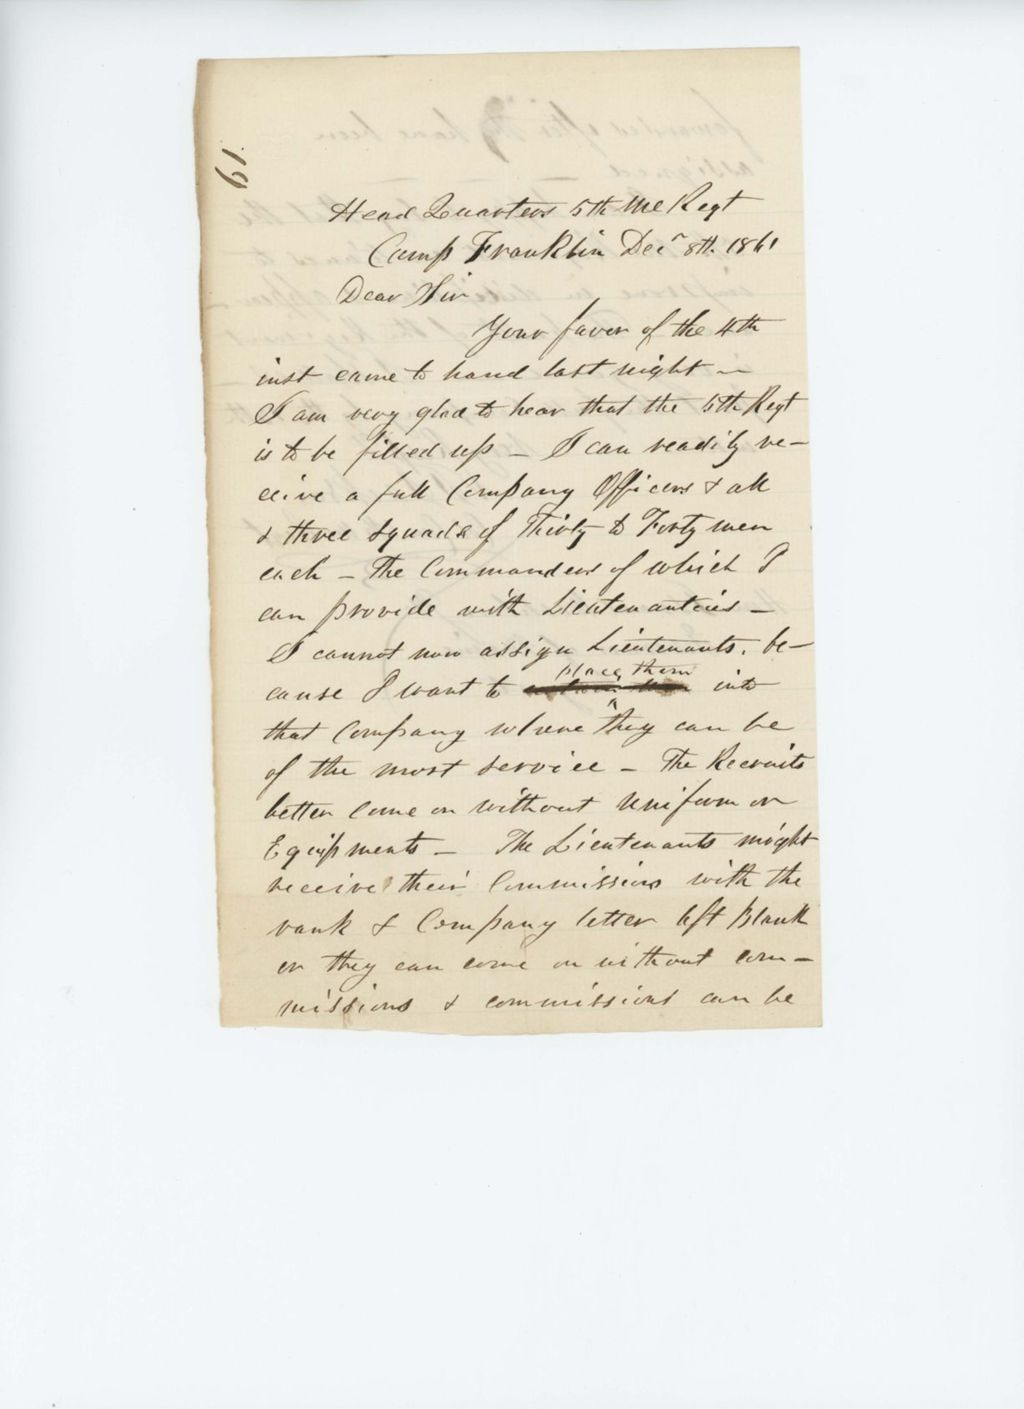 61
Head Quarters 5th Me Regt
Camp Franklin Dec r 8th. 1861
Dear Sir
Your favor of the 4th
inst came to hand last night —
I am very glad to hear that the 5th Regt
is to be filled up — I can readily re-
ceive a full Company Officers & all
& three squads of Thirty to Forty men
each — The Commanders of which I
can provide with Lieutenantcies —
I cannot now assign Lieutenants, be-
place them
cause I want to into
that Company where they can be
of the most service — The Recruits
better come on without Uniform or
Equipments — The Lieutenants might
receive their Commissions with the
rank & Company letter left Blank
or they can come on without com-
missions & commissions can be